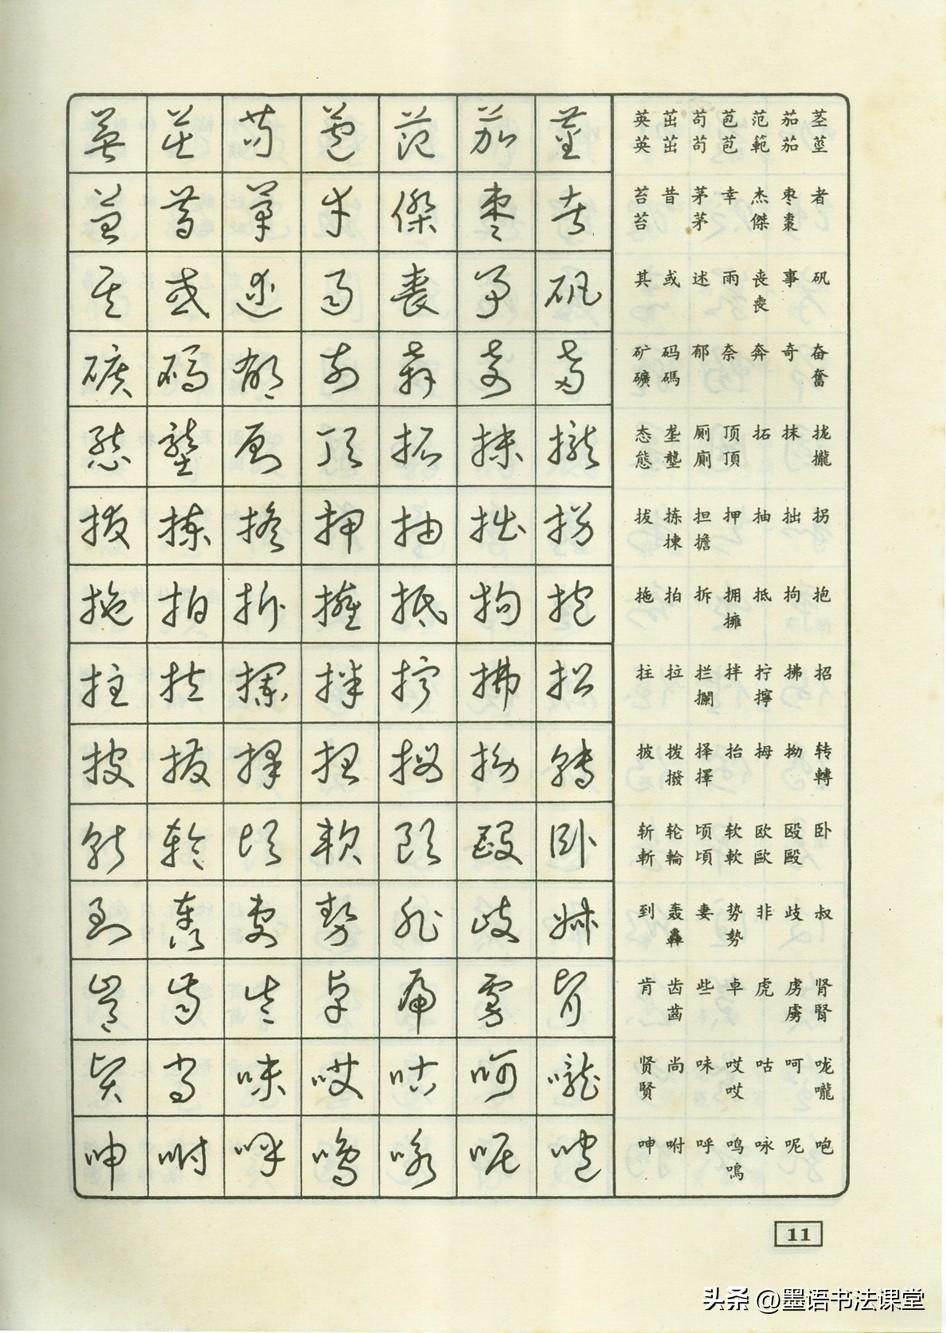 英 茁 苟 苞 范 茄 茎
英 茁 苟 苞 範 茄 莖
苔 昔 茅 幸 杰 枣 者
苔 茅 傑 棗
其 或 述 雨 丧 事 矾
喪
矿 码 郁 奈 奔 奇 奋
礦 碼 奮
态 垄 厕 顶 拓 抹 拢
態 壟 廁 頂 攏
拔 拣 担 押 抽 拙 拐
揀 擔
拖 拍 拆 拥 抵 拘 抱
擁
拄 拉 拦 拌 拧 拂 招
攔 擰
披 拨 择 抬 拇 拗 转
撥 擇 轉
斩 轮 顷 软 欧 殴 卧
斬 輪 頃 軟 歐 毆
到 轰 妻 势 非 歧 叔
轟 勢
肯 齿 些 卓 虎 虏 肾
齒 虜 腎
贤 尚 味 哎 咕 呵 咙
賢 哎 嚨
呻 咐 呼 鸣 咏 呢 咆
鳴
11
头条 @墨语书法课堂